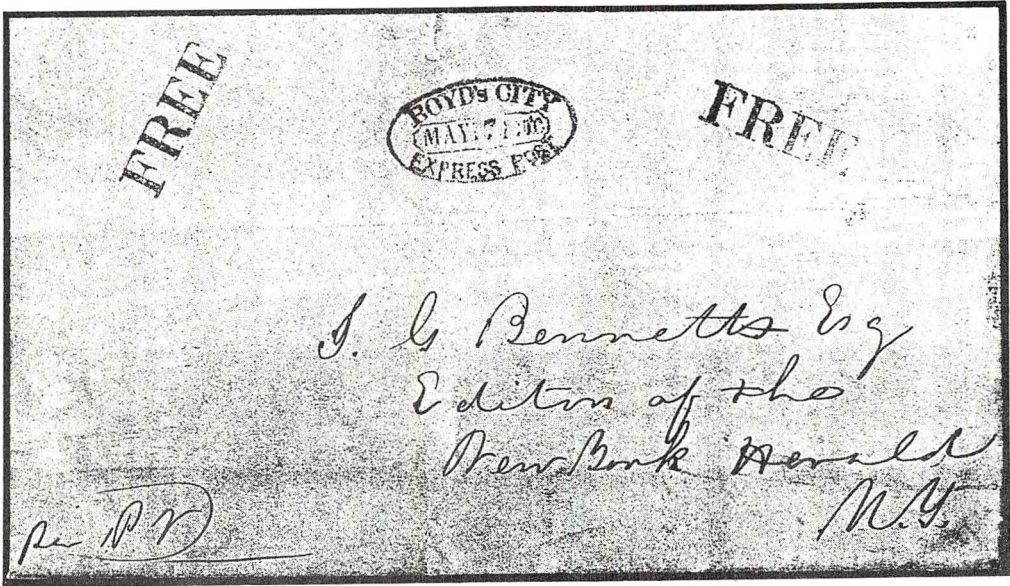 FREE
BOYD's CITY
MAY 7
EXPRESS POST
FREE
J. G Bennetts Esq
Editor of the
New York Herald
N.Y.
Per